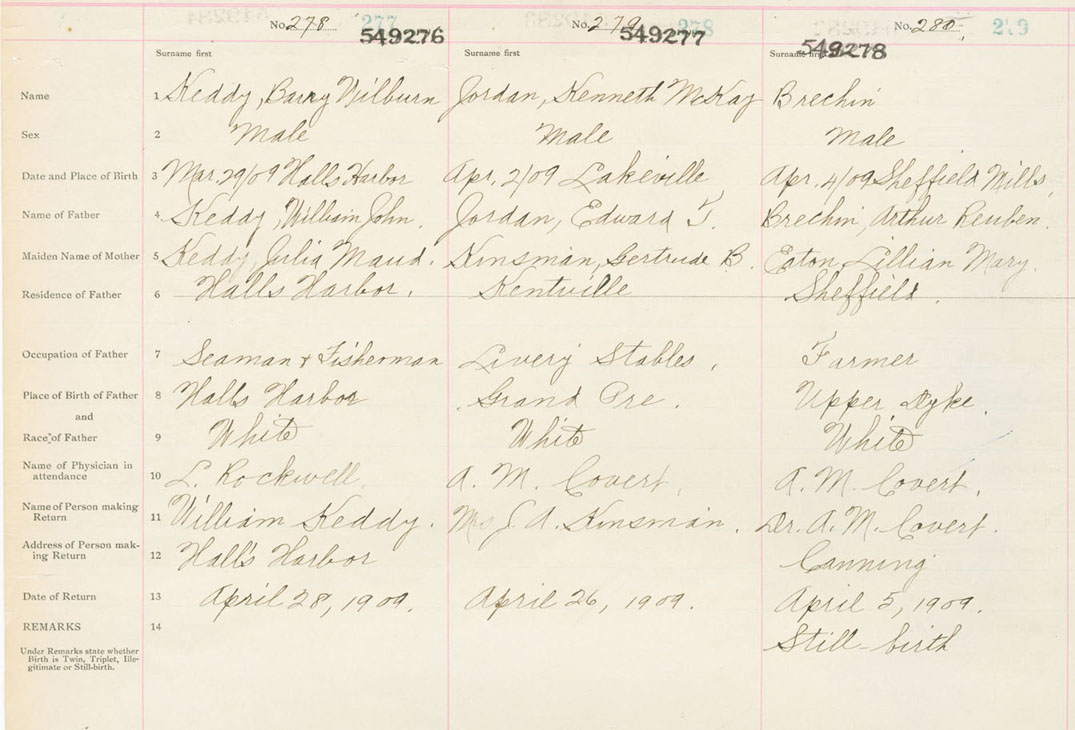 No. 278 277 No. 279 278 No. 280 279
549276 549277 549278
Surname first Surname first Surname first
Name 1 Keddy, Barry Wilburn Jordan, Kenneth McKay Brechin
Sex 2 Male Male Male
Date and Place of Birth 3 Mar. 29/09 Halls Harbor Apr. 2/09 Lakeville Apr. 4/09 Sheffield Mills,
Name of Father 4 Keddy, William John. Jordan, Edward T. Brechin, Arthur Reuben.
Maiden Name of Mother 5 Keddy, Julia Maud. Kinsman, Gertrude B. Eaton, Lillian Mary.
Residence of Father 6 Halls Harbor. Kentville Sheffield.
Occupation of Father 7 Seaman & Fisherman Livery Stables, Farmer
Place of Birth of Father 8 Halls Harbor Grand Pre. Upper Dyke.
and
Race of Father 9 White White White
Name of Physician in
attendance 10 L. Rockwell. A. M. Covert, A. M. Covert.
Name of Person making
Return 11 William Keddy. Mrs J. A. Kinsman. Dr. A. M. Covert.
Address of Person mak-
ing Return 12 Hall's Harbor Canning
Date of Return 13 April 28, 1909. April 26, 1909. April 5, 1909.
REMARKS 14 Still-birth
Under Remarks state whether
Birth is Twin, Triplet, Ille-
gitimate or Still-birth.